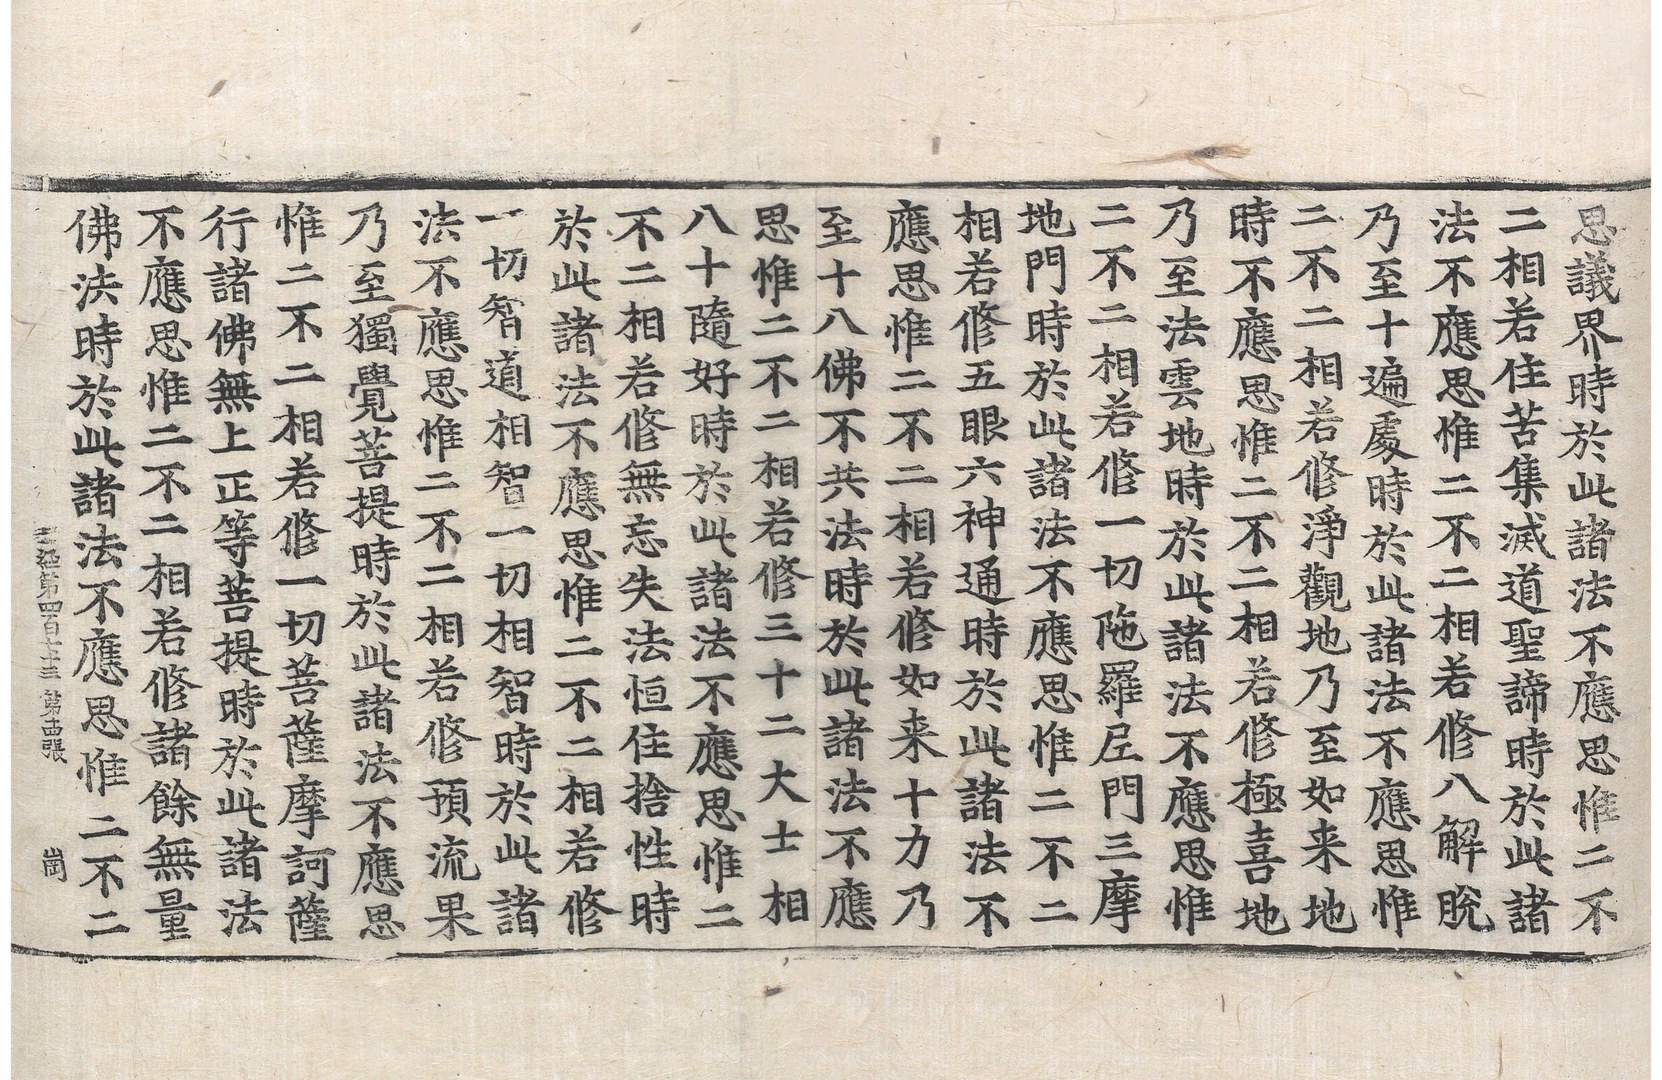 思議界時於此諸法不應思惟二不
二相若住苦集滅道聖諦時於此諸
法不應思惟二不二相若修八解脫
乃至十遍處時於此諸法不應思惟
二不二相若修淨觀地乃至如来地
時不應思惟二不二相若修極喜地
乃至法雲地時於此諸法不應思惟
二不二相若修一切陁羅尼門三摩
地門時於此諸法不應思惟二不二
相若修五眼六神通時於此諸法不
應思惟二不二相若修如来十力乃
至十八佛不共法時於此諸法不應
思惟二不二相若修三十二大士相
八十隨好時於此諸法不應思惟二
不二相若修無忘失法恒住捨性時
於此諸法不應思惟二不二相若修
一切智道相智一切相智時於此諸
法不應思惟二不二相若修預流果
乃至獨覺菩提時於此諸法不應思
惟二不二相若修一切菩薩摩訶薩
行諸佛無上正等菩提時於此諸法
不應思惟二不二相若修諸餘無量
佛法時於此諸法不應思惟二不二
經第四百七十三 第十四張 崗